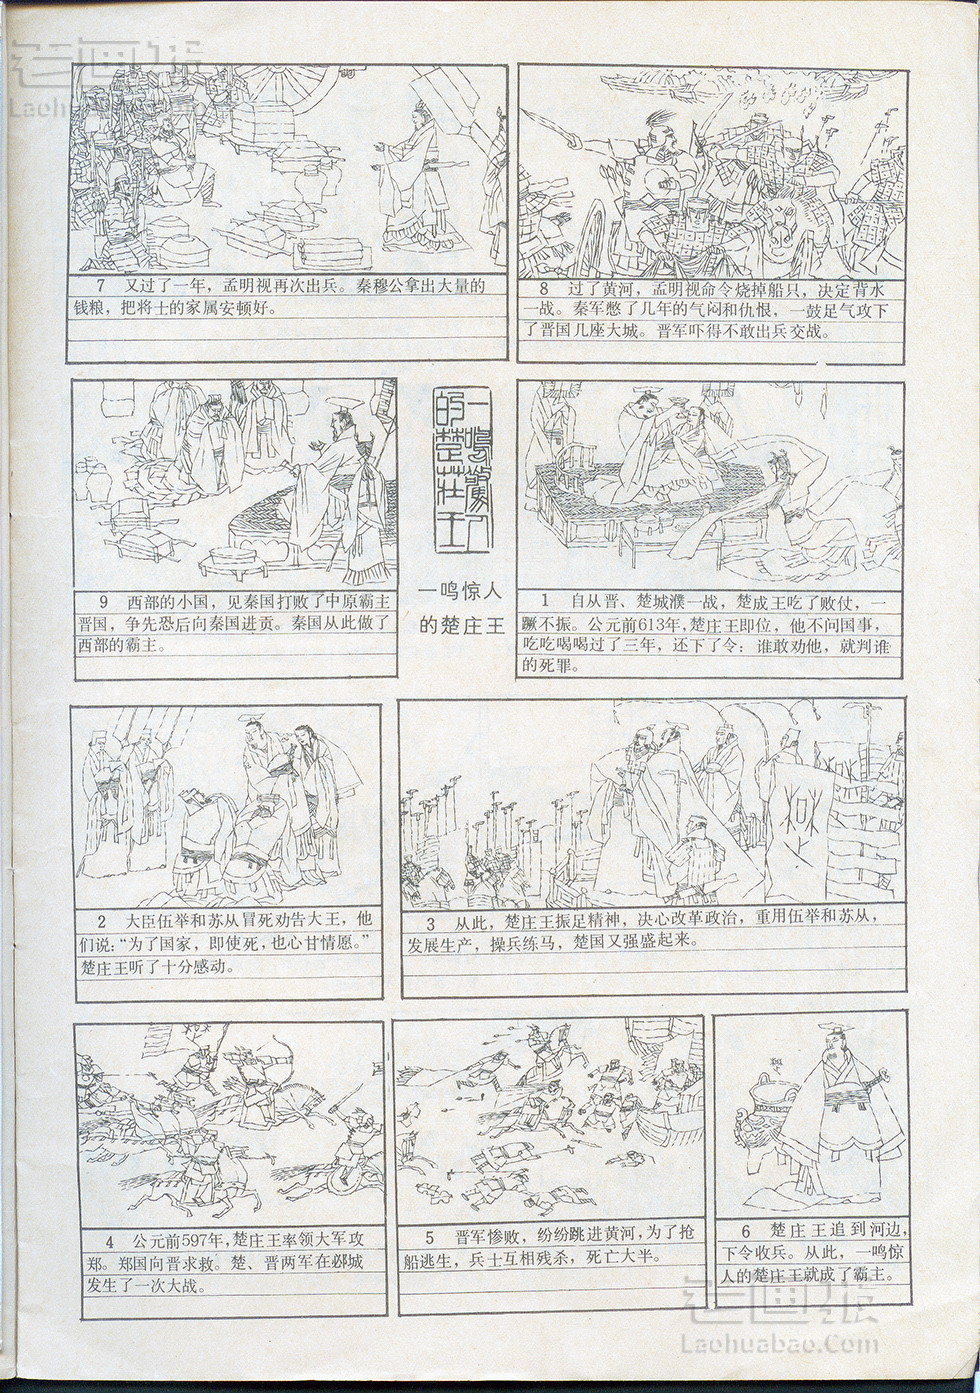 老画报
Laohuabao.Com
7 又过了一年，孟明视再次出兵。秦穆公拿出大量的
钱粮，把将士的家属安顿好。
8 过了黄河，孟明视命令烧掉船只，决定背水
一战。秦军憋了几年的气闷和仇恨，一鼓足气攻下
了晋国几座大城。晋军吓得不敢出兵交战。
9 西部的小国，见秦国打败了中原霸主
晋国，争先恐后向秦国进贡。秦国从此做了
西部的霸主。
一鸣驚人
的楚莊王
一鸣惊人
的楚庄王
1 自从晋、楚城濮一战，楚成王吃了败仗，一
蹶不振。公元前613年，楚庄王即位，他不问国事，
吃吃喝喝过了三年，还下了令：谁敢劝他，就判谁
的死罪。
2 大臣伍举和苏从冒死劝告大王，他
们说：“为了国家，即使死，也心甘情愿。”
楚庄王听了十分感动。
3 从此，楚庄王振足精神，决心改革政治，重用伍举和苏从，
发展生产，操兵练马，楚国又强盛起来。
4 公元前597年，楚庄王率领大军攻
郑。郑国向晋求救。楚、晋两军在邲城
发生了一次大战。
5 晋军惨败，纷纷跳进黄河，为了抢
船逃生，兵士互相残杀，死亡大半。
6 楚庄王追到河边，
下令收兵。从此，一鸣惊
人的楚庄王就成了霸主。
老画报
Laohuabao.Com